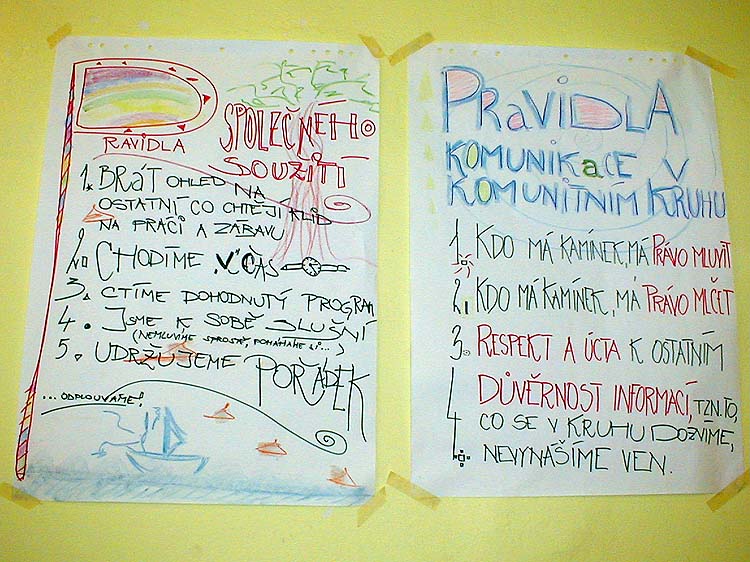 PRAVIDLA
SPOLEČNÉHO
SOUŽITÍ
1. BRÁT OHLED NA
OSTATNÍ CO CHTĚJÍ KLID
NA PRÁCI A ZÁBAVU
2. CHODÍME VČAS
3. CTÍME DOHODNUTÝ PROGRAM
4. JSME K SOBĚ SLUŠNÍ
(NEMLUVÍME SPROSTĚ, POMÁHÁME SI...)
5. UDRŽUJEME POŘÁDEK
...ODPLOUVÁME!
PRAVIDLA
KOMUNIKACE V
KOMUNITNÍM KRUHU
1. KDO MÁ KAMÍNEK, MÁ PRÁVO MLUVIT
2. KDO MÁ KAMÍNEK, MÁ PRÁVO MLČET
3. RESPEKT A ÚCTA K OSTATNÍM
4. DŮVĚRNOST INFORMACÍ, TZN. TO,
CO SE V KRUHU DOZVÍME,
NEVYNÁŠÍME VEN.